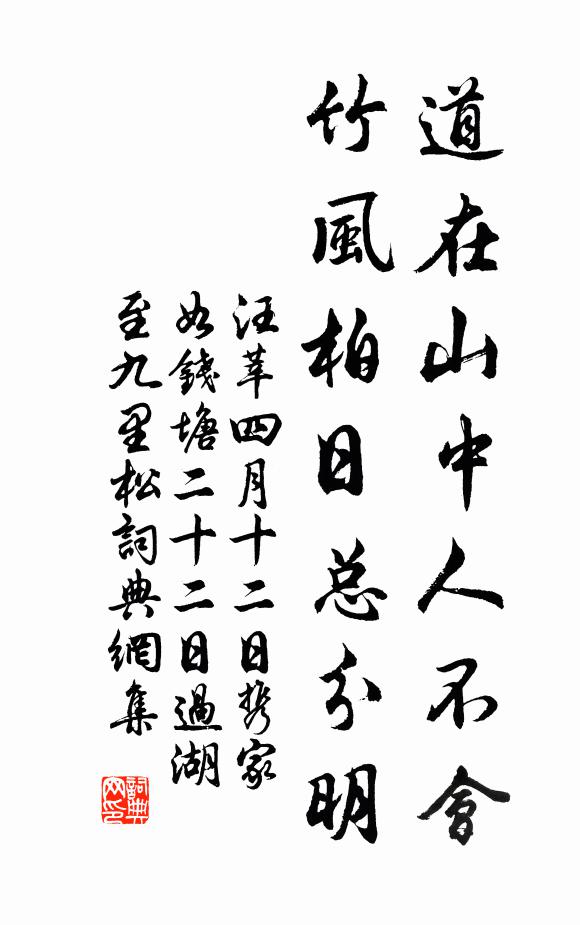 道在山中人不會
竹風柏日总分明
汪莘四月十二日携家
如錢塘二十二日過湖
至九里松詞典網集
詞典网印